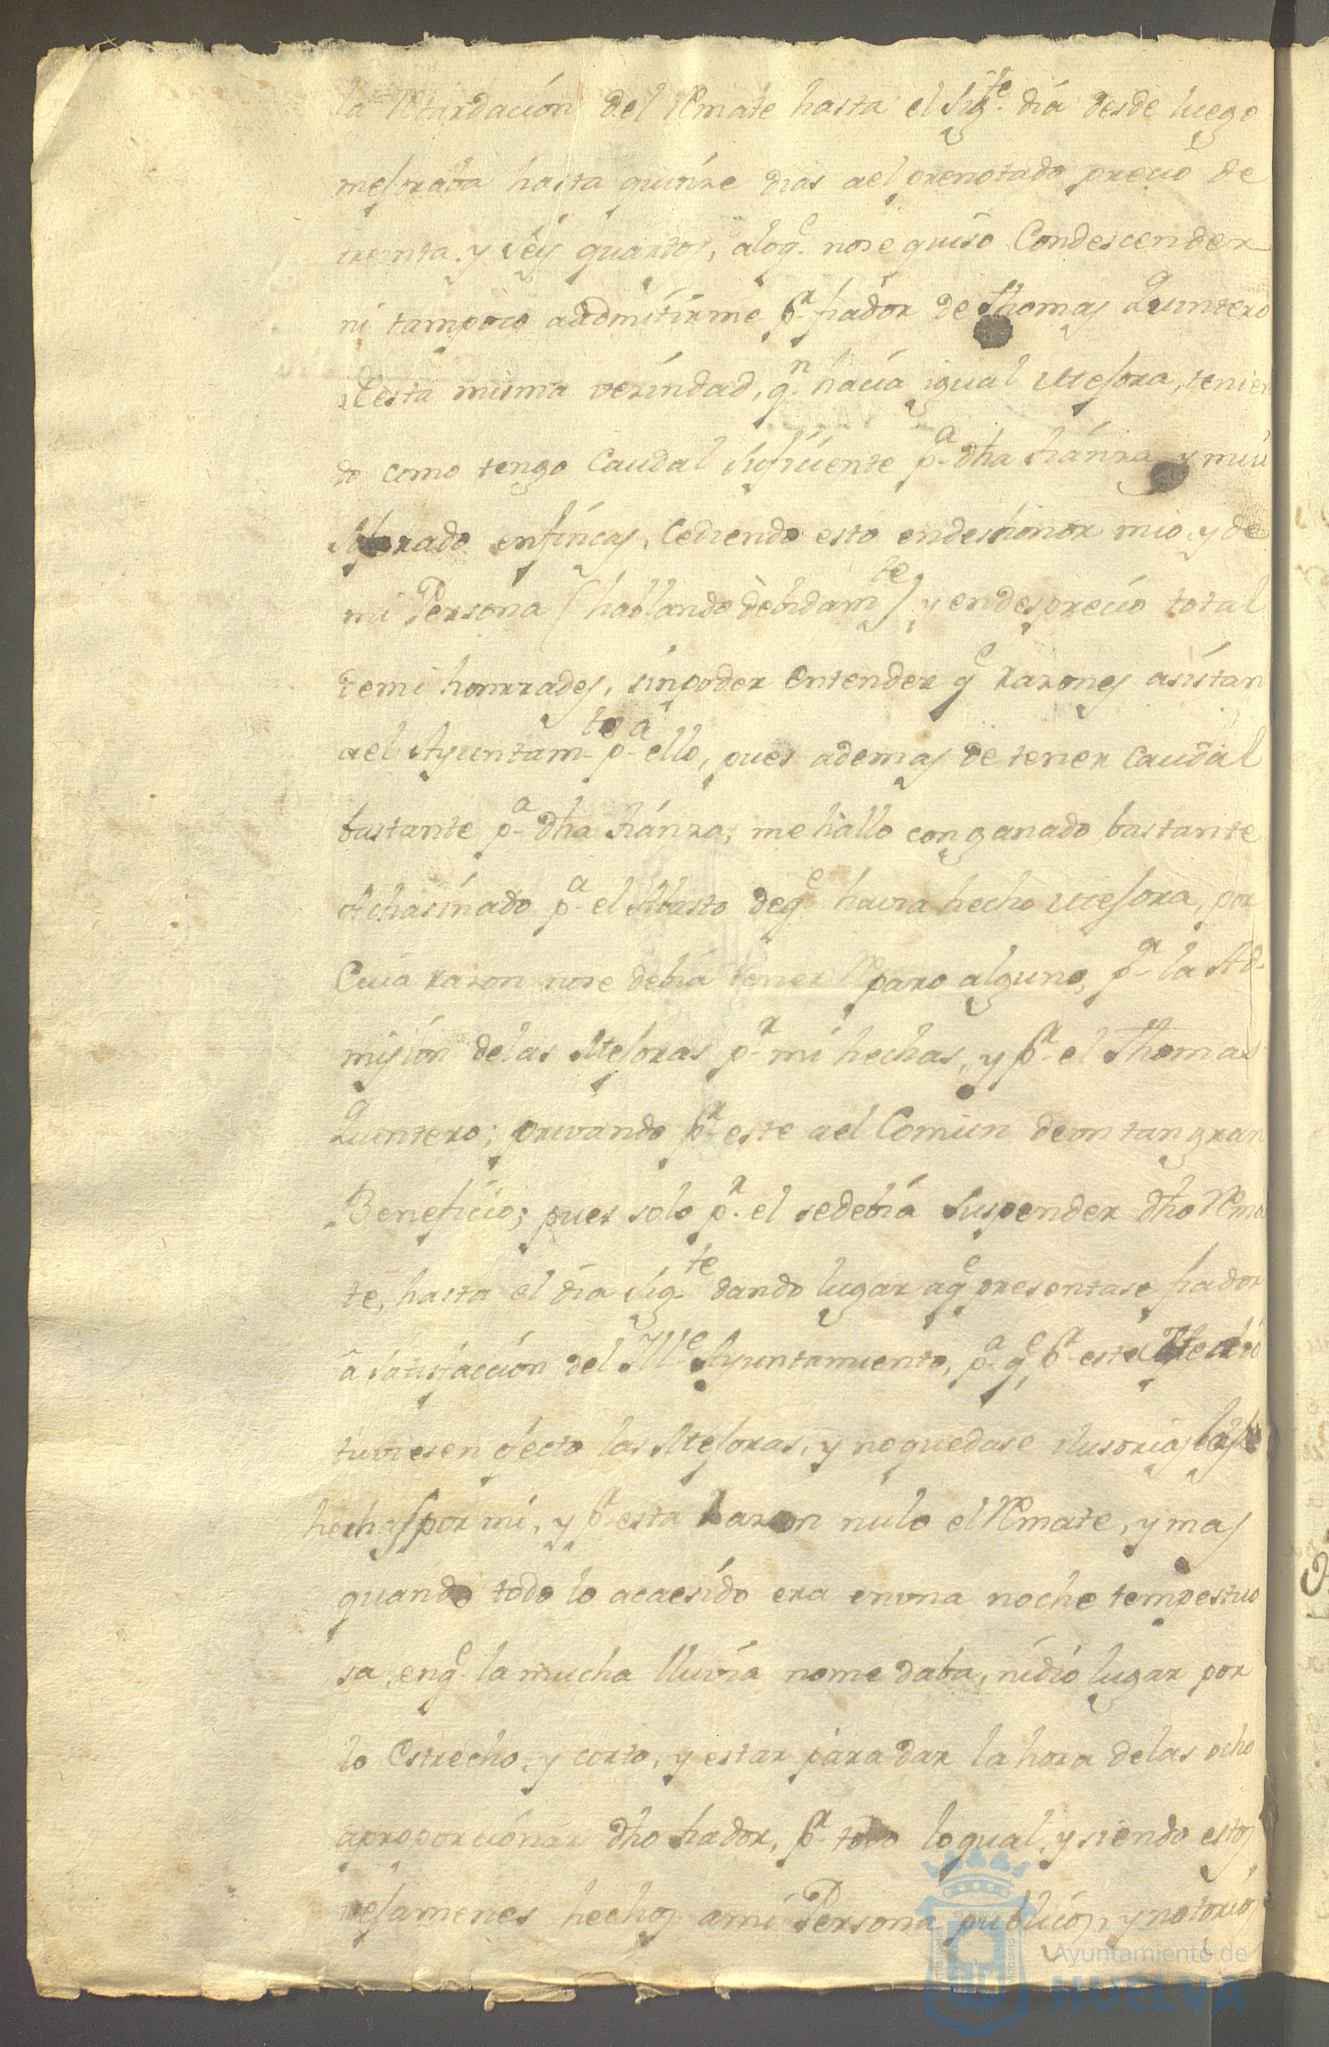 la Retardación del Remate hasta el sigte. día desde luego
mejoraba hasta quinze dias ael prenotado precio de
treinta y seis quartos, aloqe. nose quiso Condescender
ni tampoco addmitirme pr. fiador de Thomas Quintero
desta misma vezindad, qn. hacia igual Mejora, tenien
do como tengo Caudal suficiente pa. dha fianza y mui
enfincas, Cediendo esto endeshonor mio, y de
mi Persona (hablando debidamte.) y endesprecio total
demi honrrades, sinpoder Entender qe razones asistan
ael Ayuntamto. pa. ello, pues ademas de tener Caudal
bastante pa. dha fianza; me hallo conganado bastante
Achasinado pa. el Abasto deqe. havia hecho Mejora, por
Cuia razon nose debia tener Reparo alguno, pa. la Ad-
misión delas Mejoras pr. mi hechas, y pr. el Thomas
Quintero; privando pr. este ael Comun deun tan gran
Beneficio; pues solo pr. el sedebia suspender dho Rema
te, hasta el dia sigte. dando lugar aqe presentase fiador
a satisfaccion del Ille. Ayuntamiento, pa. qe. pr. este
tuviesen efecto las Mejoras, y noquedase ilusorias
hechas por mi, y pr. esta Razon nulo el Remate, y mas
quando todo lo acaesido era enuna noche tempestuo
sa, enqe. la mucha lluvia nome daba, nidió lugar por
lo Estrecho, y corto, y estar para dar la hora delas ocho
aproporcionar dho fiador, pr. todo loqual, y siendo estos
vejamenes hechos ami Persona publicos, y notorios
Ayuntamiento de
HUELVA